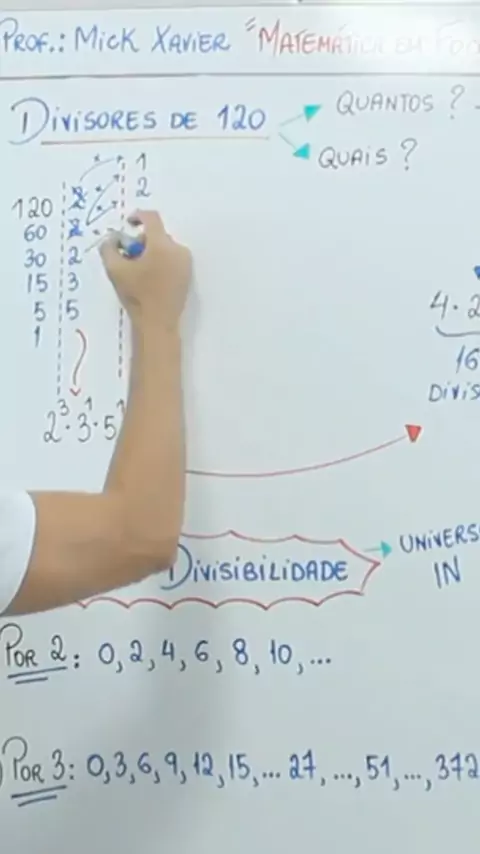 PROF.: MICK XAVIER "MATEMÁTICA EM FOC
DIVISORES DE 120
QUANTOS?
QUAIS?
1
2
120 2
60 2
30 2
15 3
5 5
1
2³·3¹·5¹
4·2
16
DIVIS
DIVISIBILIDADE
UNIVERS
IN
POR 2: 0, 2, 4, 6, 8, 10, ...
POR 3: 0, 3, 6, 9, 12, 15, ... 27, ..., 51, ..., 372